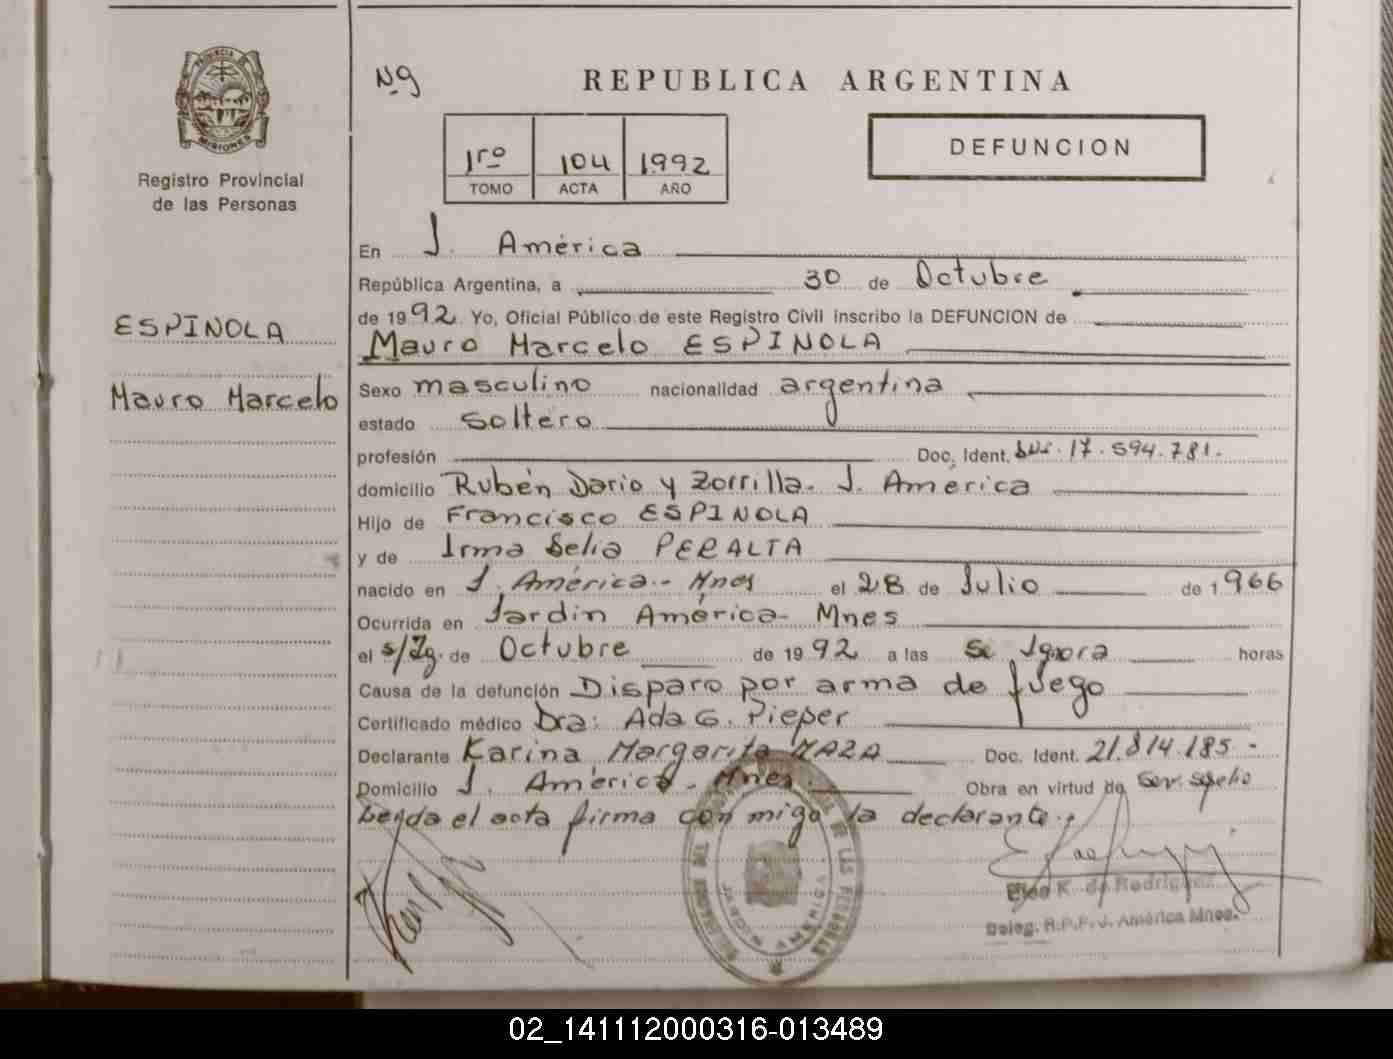 PROVINCIA DE
MISIONES
Registro Provincial
de las Personas
ESPINOLA
Mauro Marcelo
Ng
REPUBLICA ARGENTINA
1ro 104 1992
TOMO ACTA AÑO
DEFUNCION
En J. América
República Argentina, a 30 de Octubre
de 1992 Yo, Oficial Público de este Registro Civil inscribo la DEFUNCION de
Mauro Marcelo ESPINOLA
Sexo masculino nacionalidad argentina
estado Soltero
profesión Doc. Ident. 17.594.781.
domicilio Rubén Dario y Zorrilla. J. America
Hijo de Francisco ESPINOLA
y de Irma Delia PERALTA
nacido en J. América - Mnes el 28 de Julio de 1966
Ocurrida en Jardin América - Mnes
el de Octubre de 1992 a las Se Ignora horas
Causa de la defunción Disparo por arma de fuego
Certificado médico Dra: Ada G. Pieper
Declarante Karina Margarita MAZA Doc. Ident. 21.814.185 -
Domicilio J. América - Mnes. Obra en virtud de
Leyda el acta firma con migo la declarante.
K. de Rodriguez
Deleg. R.P.P. J. América Mnes.
JARDIN AMERICA
02_141112000316-013489